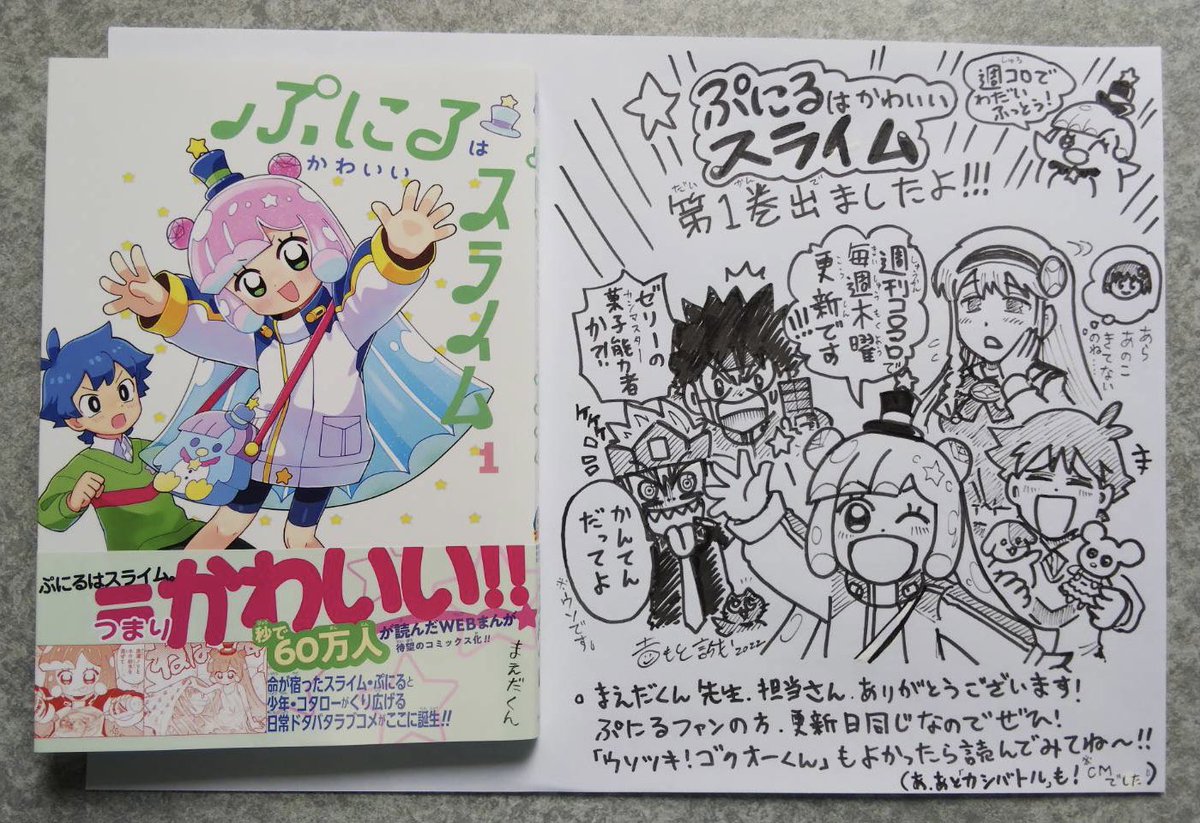 ぷにるは
かわいい
スライム
1
ぷにるはスライム。
つまり
かわいい!!
秒で
60万人
が読んだWEBまんが
待望のコミックス化!!
まえだくん
命が宿ったスライム・ぷにると
少年・コタローがくり広げる
日常ドタバタラブコメがここに誕生!!
週コロで
わだい
ふっとう!
ぷにるはかわいい
スライム
第1巻出ましたよ!!!
週刊コロコロで
毎週木曜
更新です
!!!
ゼリーの
菓子能力者
か?!
あら
あのこ
きてない
のね…
かんてん
だってよ
※ウソです。
2022
まえだくん先生、担当さん、ありがとうございます!
ぷにるファンの方、更新日同じなのでぜひ!
「ウソツキ!ゴクオーくん」もよかったら読んでみてね〜!!
(あ、あと「カシバトル」も!※CMでした)